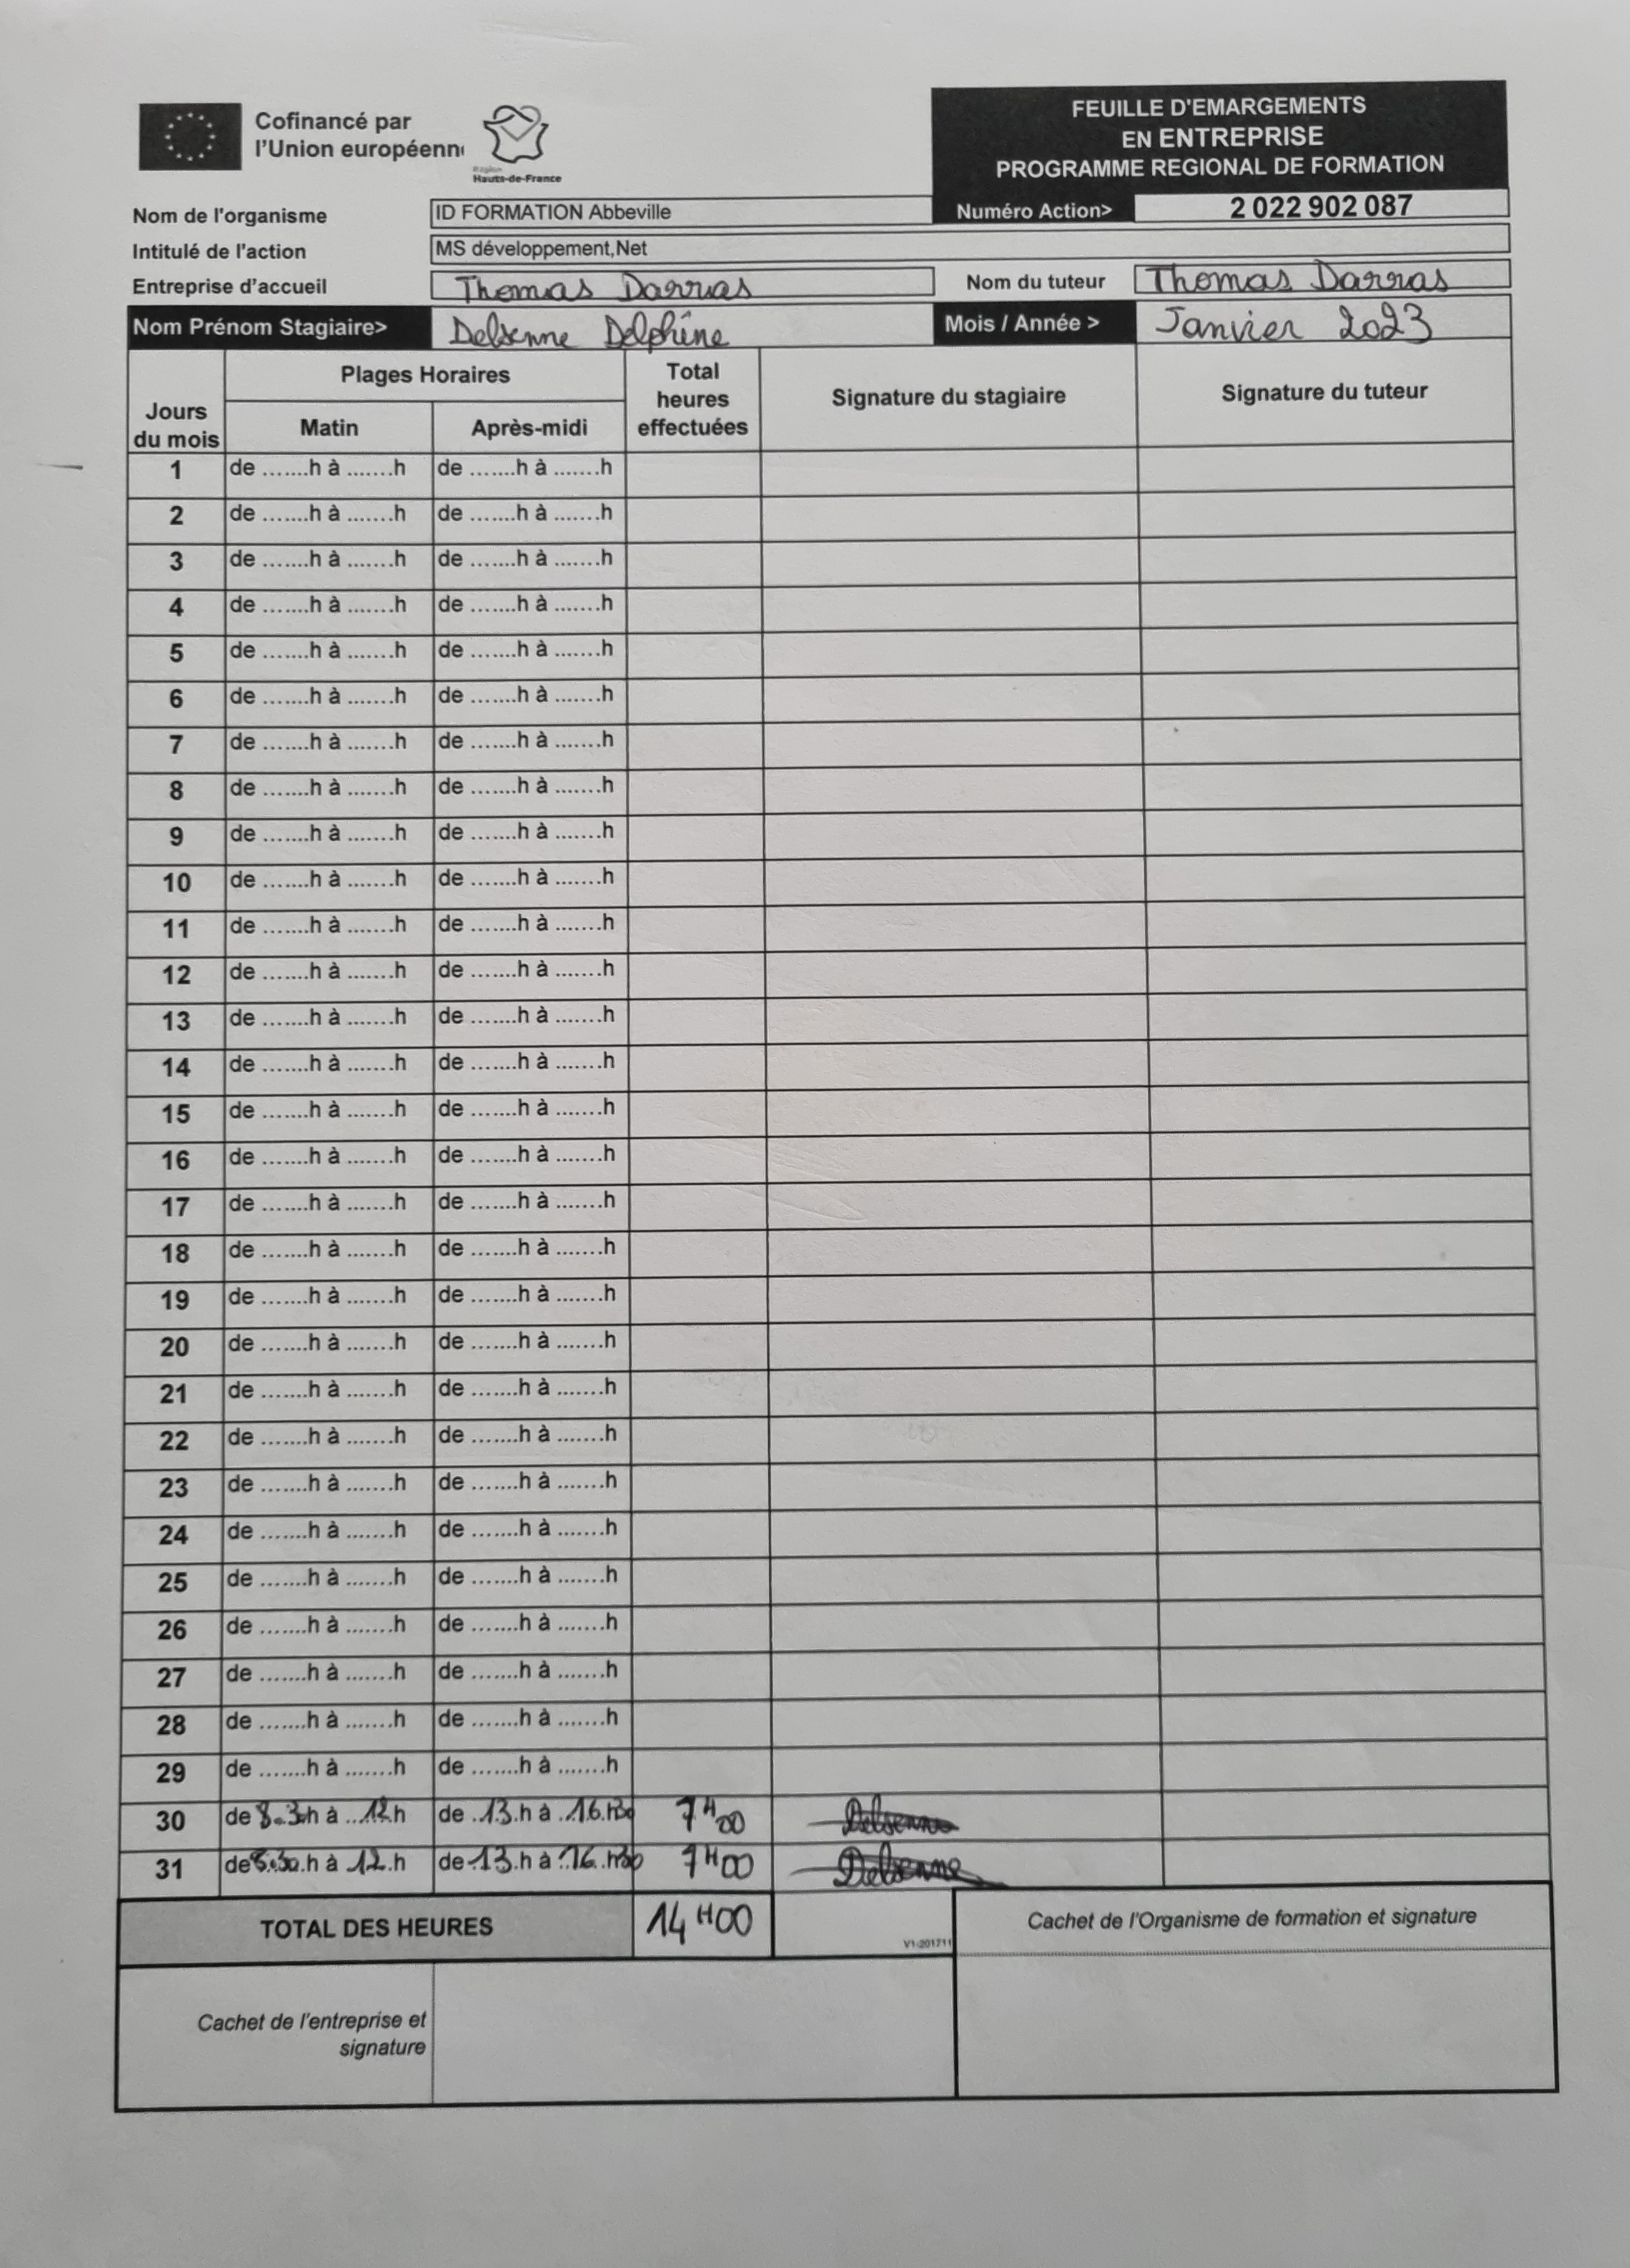 Cofinancé par
l'Union européenn
Région
Hauts-de-France
FEUILLE D'EMARGEMENTS
EN ENTREPRISE
PROGRAMME REGIONAL DE FORMATION
Nom de l'organisme ID FORMATION Abbeville Numéro Action> 2 022 902 087
Intitulé de l'action MS développement,Net
Entreprise d'accueil Thomas Darras Nom du tuteur Thomas Darras
Nom Prénom Stagiaire> Delsenne Delphine Mois / Année > Janvier 2023
Jours du mois Plages Horaires Total heures effectuées Signature du stagiaire Signature du tuteur
Matin Après-midi
1 de .......h à .......h de .......h à .......h
2 de .......h à .......h de .......h à .......h
3 de .......h à .......h de .......h à .......h
4 de .......h à .......h de .......h à .......h
5 de .......h à .......h de .......h à .......h
6 de .......h à .......h de .......h à .......h
7 de .......h à .......h de .......h à .......h
8 de .......h à .......h de .......h à .......h
9 de .......h à .......h de .......h à .......h
10 de .......h à .......h de .......h à .......h
11 de .......h à .......h de .......h à .......h
12 de .......h à .......h de .......h à .......h
13 de .......h à .......h de .......h à .......h
14 de .......h à .......h de .......h à .......h
15 de .......h à .......h de .......h à .......h
16 de .......h à .......h de .......h à .......h
17 de .......h à .......h de .......h à .......h
18 de .......h à .......h de .......h à .......h
19 de .......h à .......h de .......h à .......h
20 de .......h à .......h de .......h à .......h
21 de .......h à .......h de .......h à .......h
22 de .......h à .......h de .......h à .......h
23 de .......h à .......h de .......h à .......h
24 de .......h à .......h de .......h à .......h
25 de .......h à .......h de .......h à .......h
26 de .......h à .......h de .......h à .......h
27 de .......h à .......h de .......h à .......h
28 de .......h à .......h de .......h à .......h
29 de .......h à .......h de .......h à .......h
30 de 8.30h à 12h de 13.h à 16.h30 7H00 Delsenne
31 de 8.30.h à 12.h de 13.h à 16.h30 7H00 Delsenne
TOTAL DES HEURES 14H00
V1-201711
Cachet de l'Organisme de formation et signature
Cachet de l'entreprise et
signature